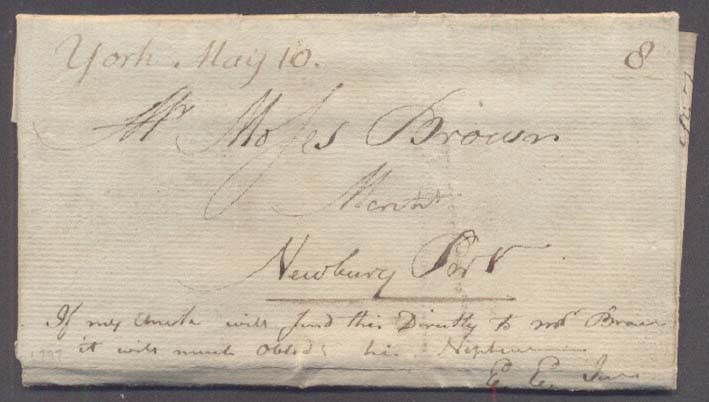 York May 10. 8
Mr. Moses Brown
Mercht
Newbury Port
If my Uncle will send this Directly to Mr. Brown
it will much Oblidg his Nephew
E. E. Jun
1797